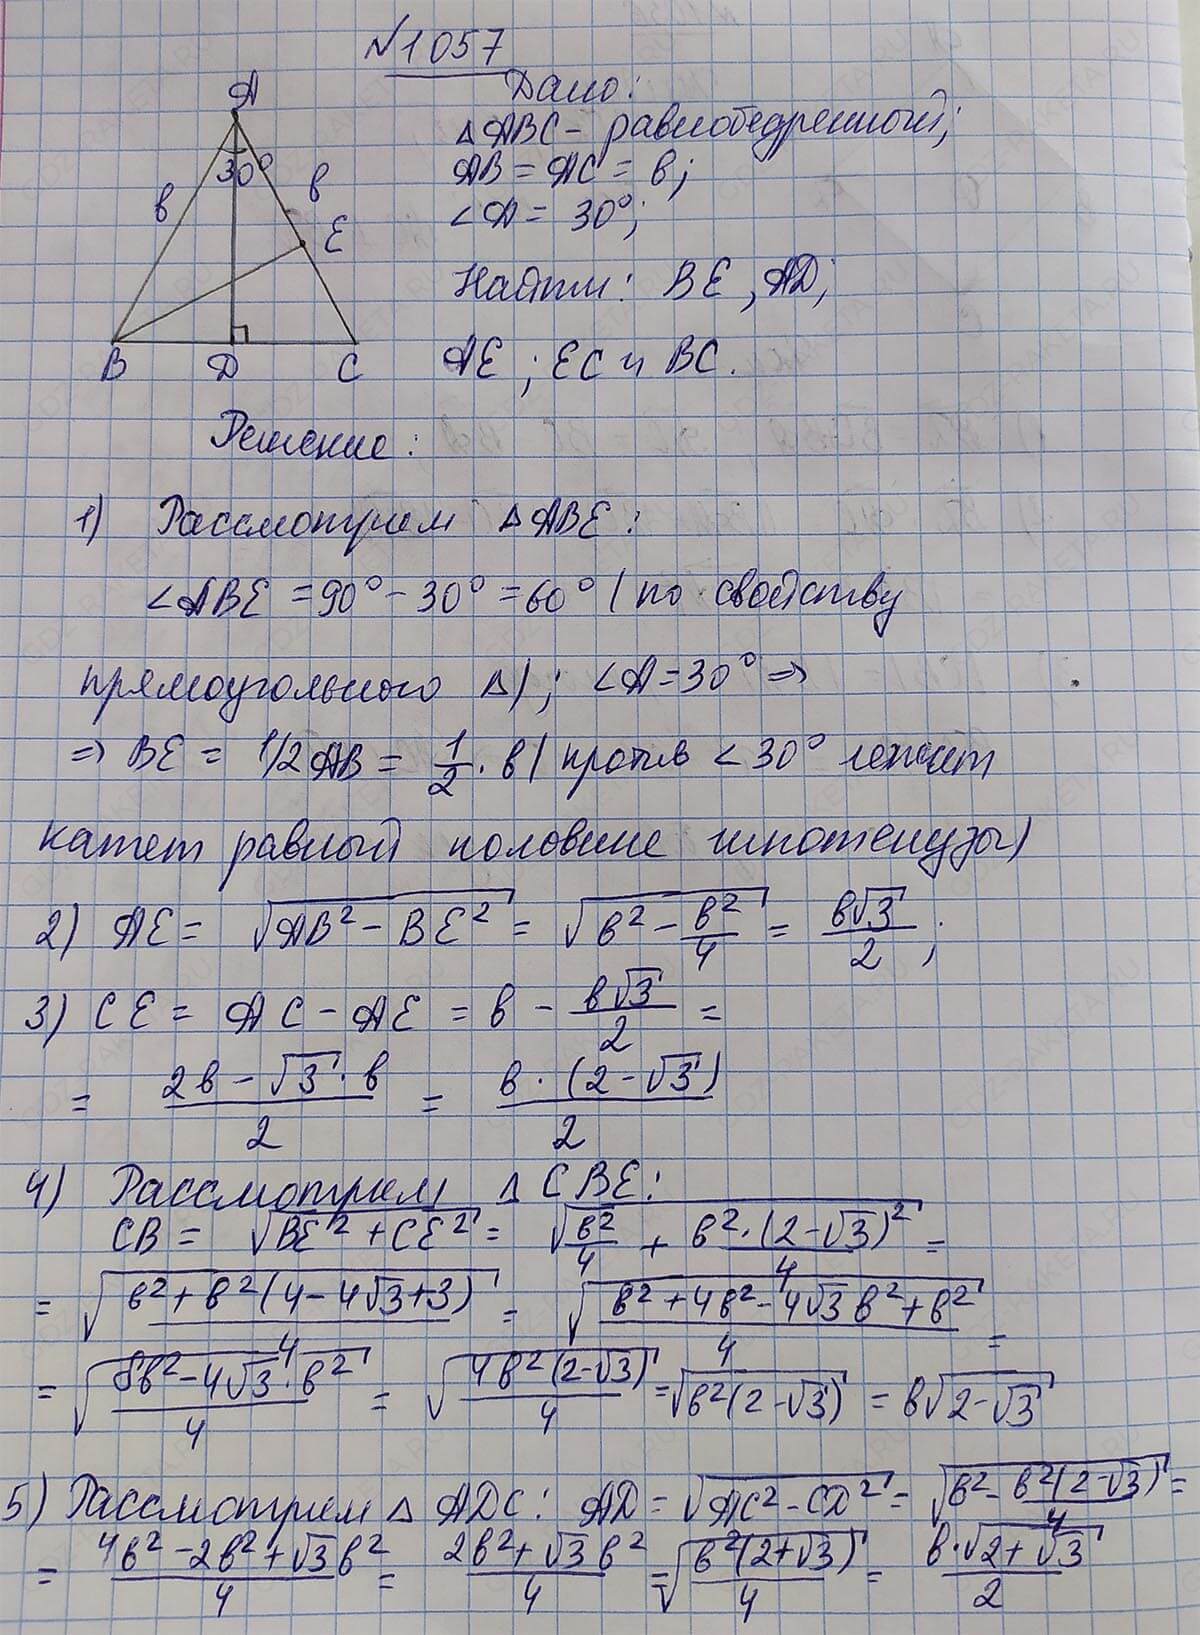 №1057
Дано:
△ABC - равнобедренный;
AB = AC = в;
∠A = 30°;
Найти: BE, AD;
AE; EC и BC.
A
30°
в
в
E
B
D
C
Решение:
1) Рассмотрим △ABE:
∠ABE = 90° - 30° = 60° (по свойству
прямоугольного △); ∠A = 30° ⇒
⇒ BE = 1/2 AB = 1/2 · в (против ∠30° лежит
катет равный половине гипотенузы)
2) AE = √(AB² - BE²) = √(в² - в²/4) = в√3/2;
3) CE = AC - AE = в - в√3/2 =
= (2в - √3 · в)/2 = в · (2 - √3)/2
4) Рассмотрим △CBE:
CB = √(BE² + CE²) = √(в²/4 + в² · (2 - √3)²/4) =
= √((в² + в²(4 - 4√3 + 3))/4) = √((в² + 4в² - 4√3 в² + в²)/4) =
= √((8в² - 4√3 · в²)/4) = √(4в²(2 - √3)/4) = √(в²(2 - √3)) = в√(2 - √3)
5) Рассмотрим △ADC: AD = √(AC² - CD²) = √(в² - в²(2 - √3)/4) =
= (4в² - 2в² + √3 в²)/4 = (2в² + √3 в²)/4 = √(в²(2 + √3)/4) = в · √(2 + √3)/2